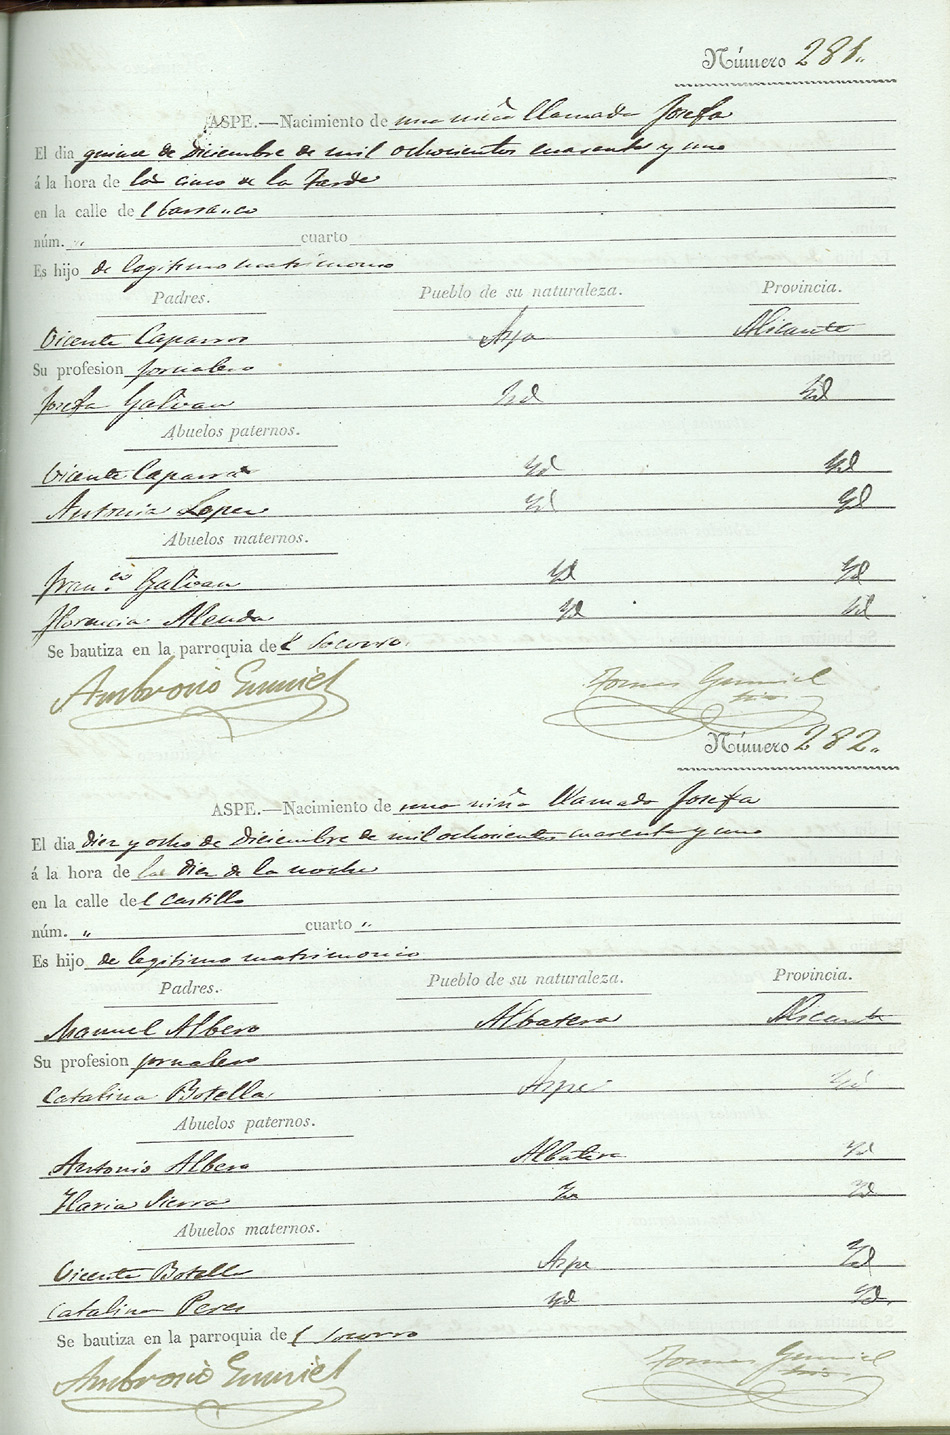 Número 281.
ASPE.—Nacimiento de una niña llamada Josefa
El dia quince de Diciembre de mil ochocientos cuarenta y uno
á la hora de las cinco de la Tarde
en la calle del barranco
núm. " cuarto
Es hijo de legitimo matrimonio
Padres. Pueblo de su naturaleza. Provincia.
Vicente Caparros Aspe Alicante
Su profesion jornalero
Josefa Galvan Yd Yd
Abuelos paternos.
Vicente Caparros Yd Yd
Antonia Lopez Yd Yd
Abuelos maternos.
Fran.co Galvan Yd Yd
Florencia Alenda Yd Yd
Se bautiza en la parroquia del Socorro.
Ambrosio Gumiel Tomas Gumiel
Número 282.
ASPE.—Nacimiento de una niña llamada Josefa
El dia diez y ocho de Diciembre de mil ochocientos cuarenta y uno
á la hora de las diez de la noche
en la calle del Castillo
núm. " cuarto "
Es hijo de legitimo matrimonio
Padres. Pueblo de su naturaleza. Provincia.
Manuel Albero Albatera Alicante
Su profesion jornalero
Catalina Botella Aspe Yd
Abuelos paternos.
Antonio Albero Albatera Yd
Maria Sierra Yd Yd
Abuelos maternos.
Vicente Botella Aspe Yd
Catalina Peres Yd Yd.
Se bautiza en la parroquia del Socorro
Ambrosio Gumiel Tomas Gumiel